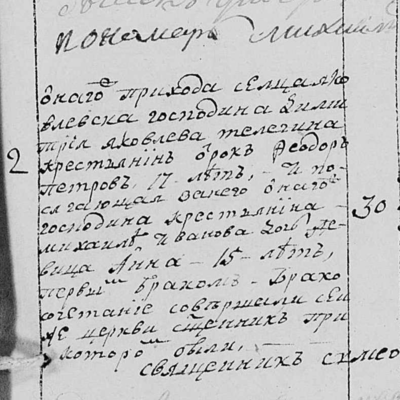 пономарь Михаил
онаго прихода селца яко
влевска господина Дими
трия яковлева телегина
2 крестьянинъ отрокъ Феодоръ
Петровъ, 17 летъ, - и по
сягающая занего онаго
господина крестьянина - 30
михаила иванова дочь де
вица Анна - 15 - летъ,
первымъ бракомъ - Брако
сочетание совершали сеи
же церкви сщенникъ при
которомъ были, -
священникъ симео